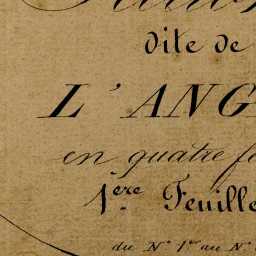 dite de
L'ANG
en quatre fe
1.ère Feuille
du N° 1er au N°